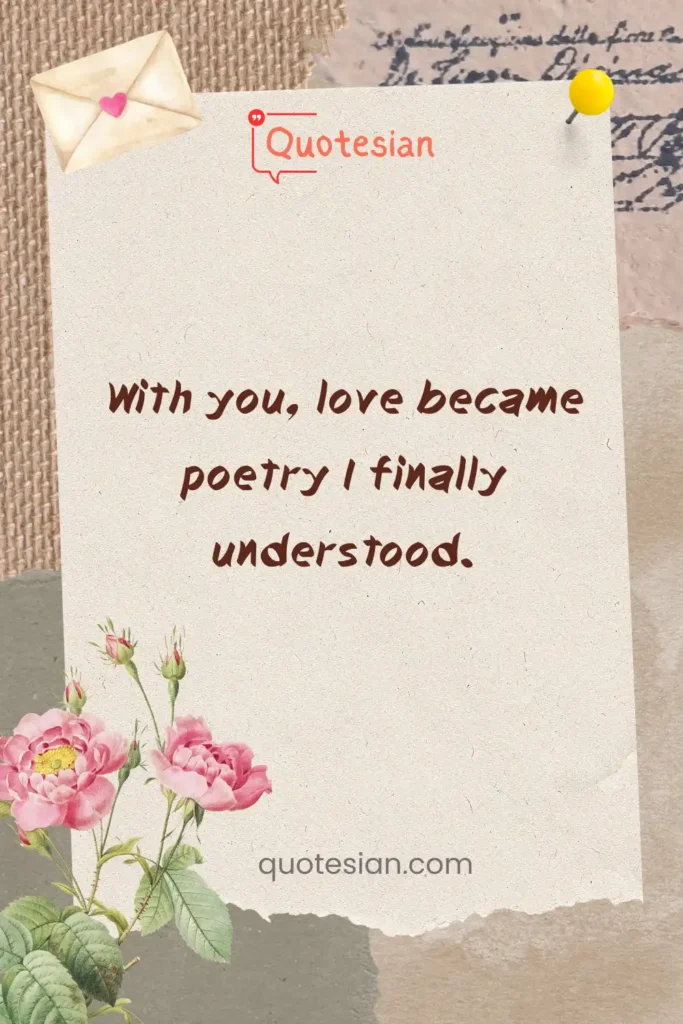 Quotesian
With you, love became
poetry I finally
understood.
quotesian.com